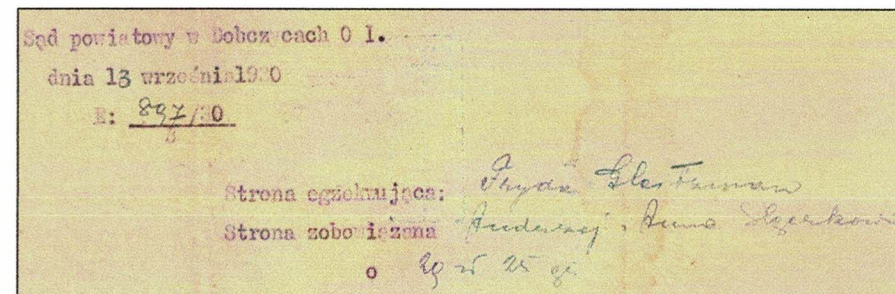 Sąd powiatowy w Dobczycach O I.
dnia 13 września 1930
E: 897/30
Strona egzekwująca: Fryda
Strona zobowiązana Andrzej i Anna
o 29 zł 25 gr